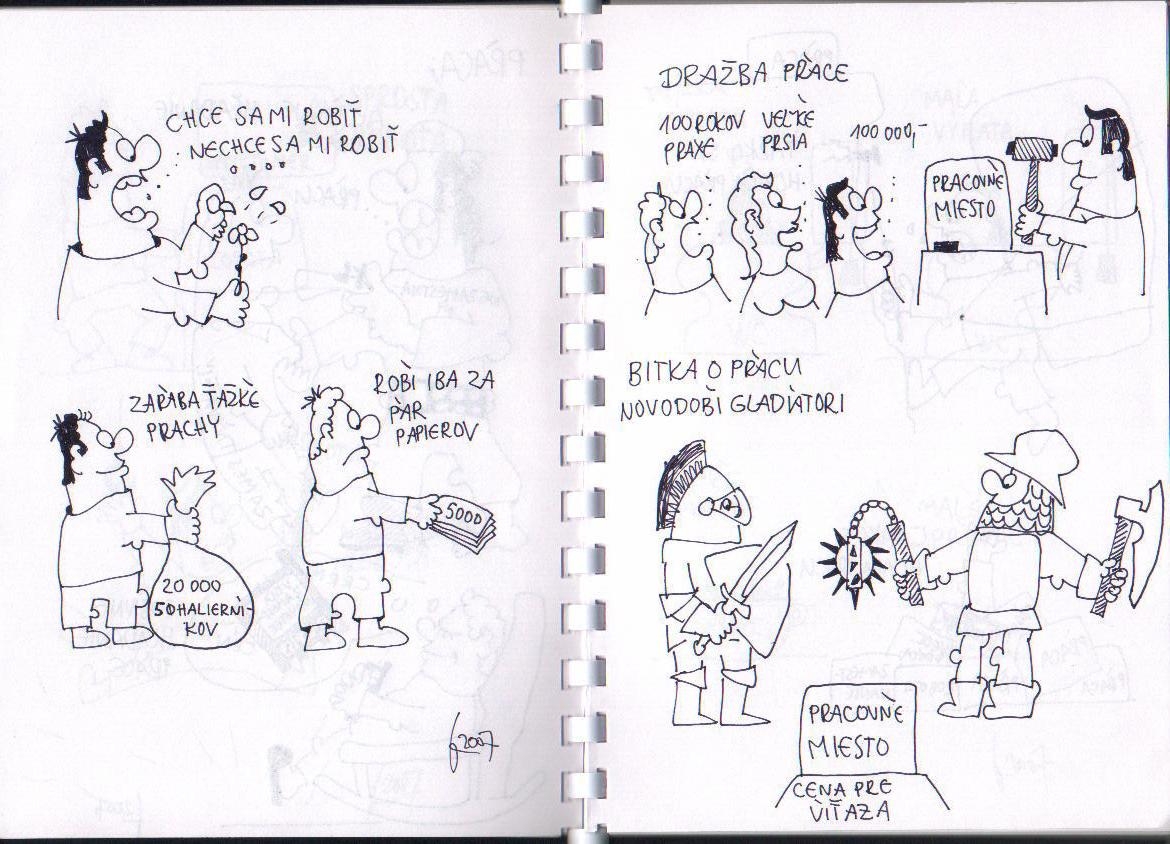 CHCE SA MI ROBIŤ
NECHCE SA MI ROBIŤ
ZARÁBA ŤAŽKÉ
PRACHY
20 000
50HALIERNI-
KOV
ROBÍ IBA ZA
PÁR
PAPIEROV
5000
2007
DRAŽBA PRÁCE
100 ROKOV
PRAXE
VEĽKÉ
PRSIA
100 000,-
PRACOVNÉ
MIESTO
BITKA O PRÁCU
NOVODOBÍ GLADIÁTORI
PRACOVNÉ
MIESTO
CENA PRE
VÍŤAZA